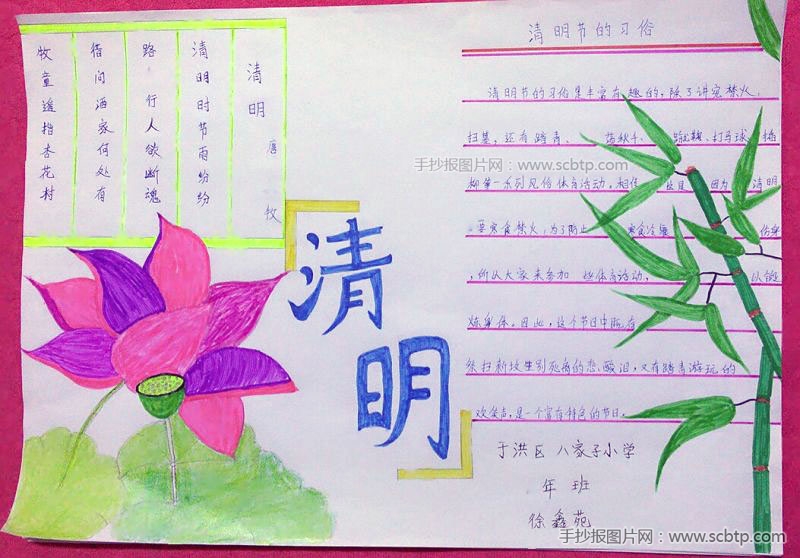 清明
唐
牧
清明时节雨纷纷
路 行人欲断魂
借问酒家何处有
牧童遥指杏花村
清明
清明节的习俗
清明节的习俗是丰富有趣的，除了讲究禁火、
扫墓，还有踏青、荡秋千、蹴鞠、打马球、插
柳等一系列风俗体育活动。相传 因为 清明
要寒食禁火，为了防止 寒食冷餐 伤身
，所以大家来参加 些体育活动， 以锻
炼身体。因此，这个节日中既有
祭扫新坟生别死离的悲酸泪，又有踏青游玩的
欢笑声，是一个富有特色的节日。
于洪区八家子小学
年 班
徐鑫苑
手抄报图片网：www.scbtp.com
手抄报图片网：www.scbtp.com